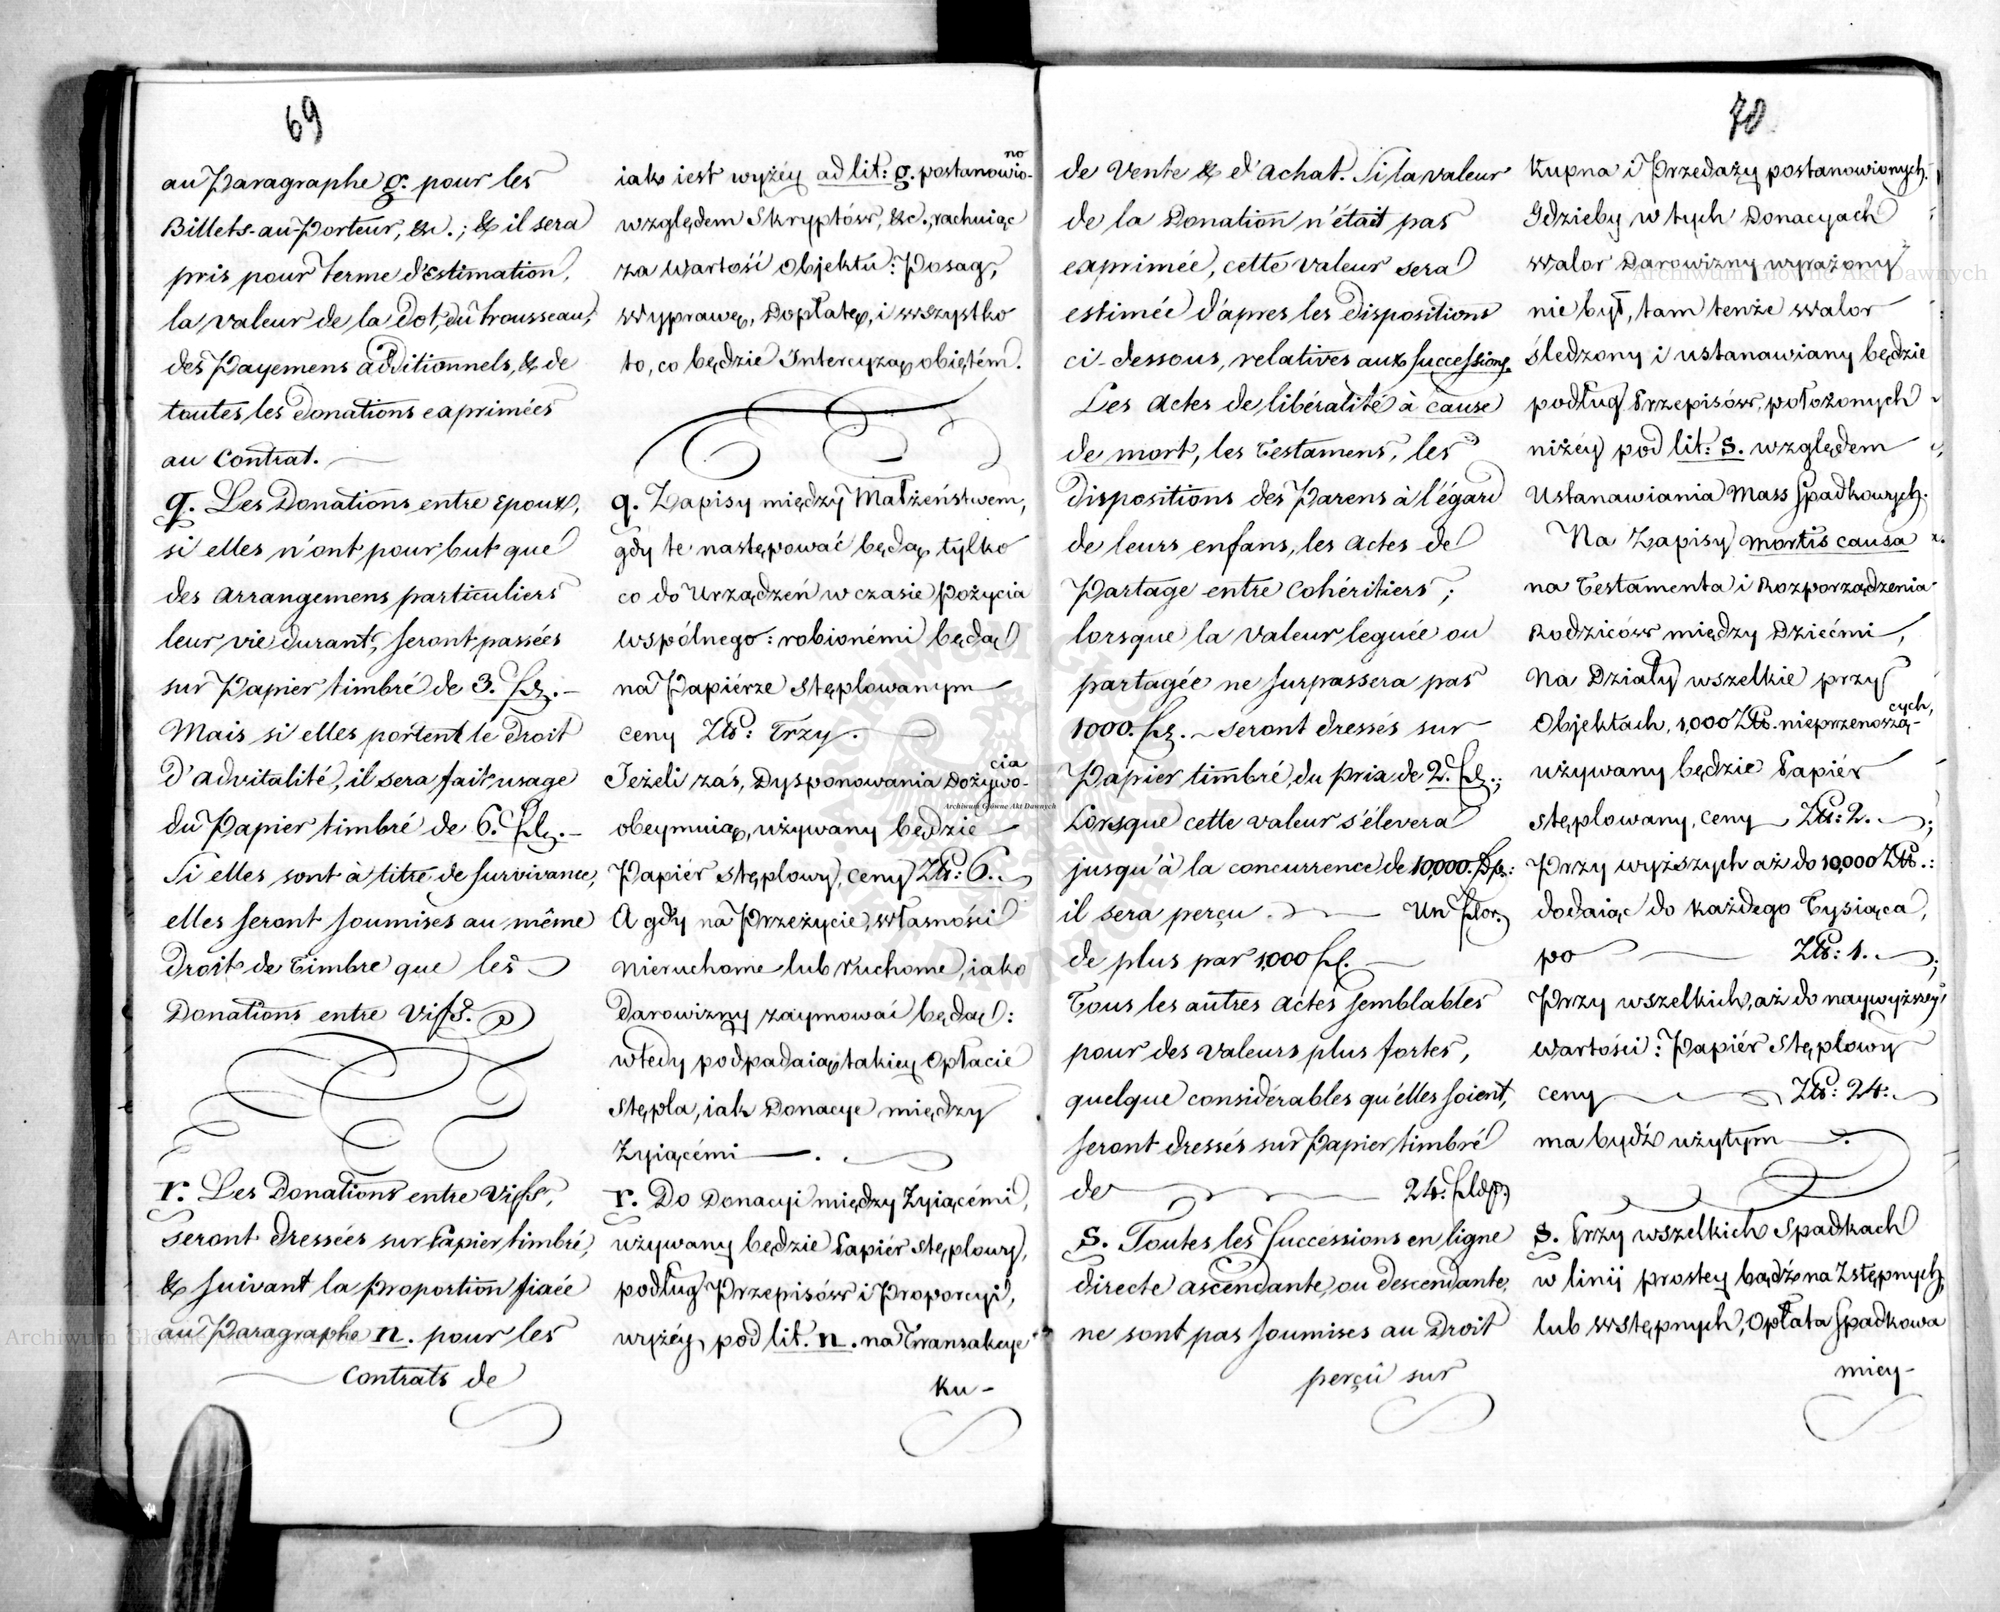 69
au Paragraphe g. pour les
Billets-au-Porteur, &c.; & il sera
pris pour terme d'Estimation,
la valeur de la dot, du trousseau,
des Payemens additionnels, & de
toutes les donations exprimées
au Contrat.
q. Les Donations entre Epoux,
si elles n'ont pour but que
des arrangemens particuliers
leur vie durant, seront passées
sur Papier timbré de 3. fl.
Mais si elles portent le droit
d'advitalité, il sera fait usage
du Papier timbré de 6. fl.
Si elles sont à titre de survivance,
elles seront soumises au même
droit de Timbre que les
Donations entre Vifs.
r. Les Donations entre Vifs,
seront dressées sur Papier timbré,
& suivant la proportion fixée
au Paragraphe n. pour les
Contrats de
iak iest wyżéy ad lit: g. postanowio-
no
względem Skryptów, &c., rachuiąc
za wartość Objektu: Posag,
Wyprawę, Dopłatę, i wszystko
to, co będzie Intercyzą obiętém.
q. Zapisy między Małżeństwem,
gdy te następować będą, tylko
co do Urządzeń w czasie pożycia
wspólnego: robionémi będą
na Papiérze Stęplowanym
ceny Złt: Trzy.
Jeżeli zaś, Dysponowania Dożywo-
cia
obeymuią, używany będzie
Papiér Stęplowy, ceny Złt: 6.
A gdy na Przeżycie, własności
nieruchome lub ruchome, iako
Darowizny zaymować będą:
wtedy podpadaią takiey Opłacie
Stępla, iak Donacye między
Żyiącémi.
r. Do Donacyi między Żyiącémi,
używany będzie Papiér Stęplowy,
podług Przepisów i Proporcyi,
wyżéy, pod lit. n. na Transakcye
ku-
70
de Vente & d'Achat. Si la valeur
de la Donation n'était pas
exprimée, cette valeur sera
estimée d'apres les dispositions
ci-dessous, relatives aux Successions.
Les Actes de libéralité à cause
de mort, les Testamens, les
dispositions des Parens à l'égard
de leurs enfans, les Actes de
Partage entre Cohéritiers;
lorsque la valeur leguée ou
partagée ne surpassera pas
1000. fl. seront dressés sur
Papier timbré, du prix de 2. fl.;
Lorsque cette valeur s'élevera
jusqu'à la concurrence de 10,000. fl.:
il sera perçu Un flor.
de plus par 1,000 fl.
Tous les autres Actes semblables
pour des valeurs plus fortes,
quelque considérables qu'elles soient,
seront dressés sur Papier timbré
de 24. fl.
s. Toutes les Successions en ligne
directe ascendante, ou descendante,
ne sont pas soumises au Droit
perçu sur
Kupna i Przedaży postanowionych.
Gdzieby w tych Donacyach
walor Darowizny wyrażony
nie był, tam tenże walor
śledzony i ustanawiany będzie
podług Przepisów, położonych
niżéy pod lit: s. względem
Ustanawiania Mass Spadkowych.
Na Zapisy mortis causa
na Testamenta i Rozporządzenia
Rodziców między Dziećmi,
Na Działy wszelkie przy
Objektach, 1,000 Złt. nieprzenoszą-
cych,
używany będzie Papiér
stęplowany, ceny Złt: 2.;
Przy wyższych aż do 10,000 Złt.:
dodaiąc do każdego Tysiąca,
po Złt: 1.;
Przy wszelkich, aż do naywyższéy
wartości: Papiér Stęplowy
ceny Złt: 24.
ma bydź użytym.
s. Przy wszelkich Spadkach
w linij prostey bądź na Zstępnych,
lub wstępnych, Opłata Spadkowa
miey-